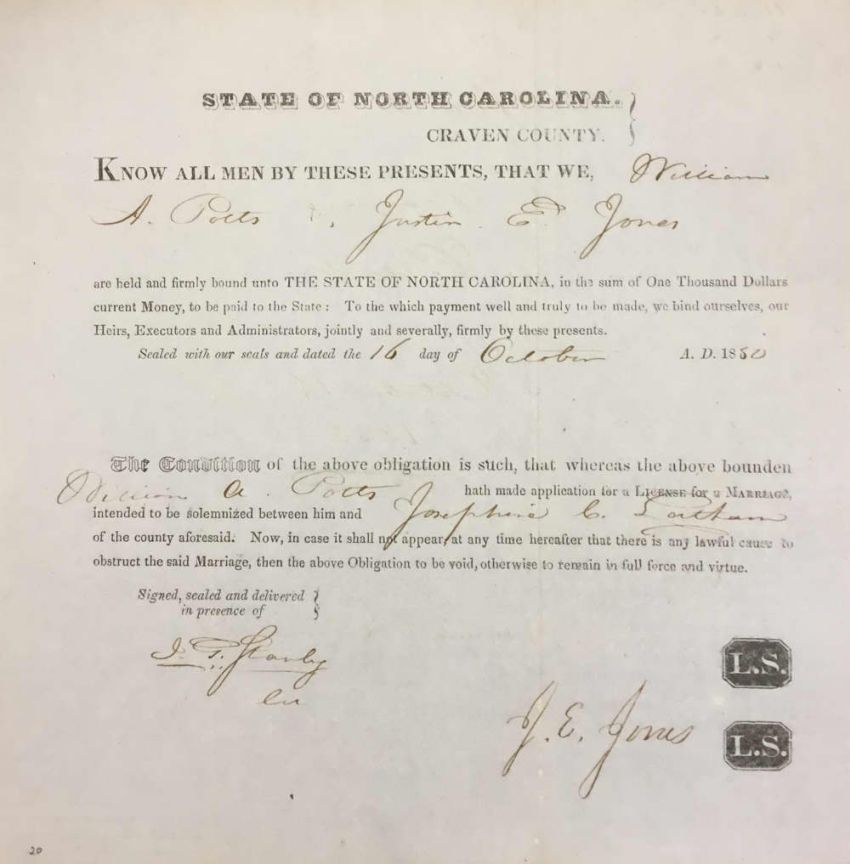 STATE OF NORTH CAROLINA.
CRAVEN COUNTY.
KNOW ALL MEN BY THESE PRESENTS, THAT WE, William
A. Potts , Justin E. Jones
are held and firmly bound unto THE STATE OF NORTH CAROLINA, in the sum of One Thousand Dollars
current Money, to be paid to the State: To the which payment well and truly to be made, we bind ourselves, our
Heirs, Executors and Administrators, jointly and severally, firmly by these presents.
Sealed with our seals and dated the 16 day of October A. D. 1850
The Condition of the above obligation is such, that whereas the above bounden
William A. Potts hath made application for a LICENSE for a MARRIAGE,
intended to be solemnized between him and Josephine C. Latham
of the county aforesaid. Now, in case it shall not appear, at any time hereafter that there is any lawful cause to
obstruct the said Marriage, then the above Obligation to be void, otherwise to remain in full force and virtue.
Signed, sealed and delivered
in presence of
Stanly
L.S.
J. E. Jones
L.S.
20